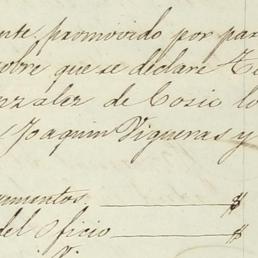 ente promovido por par
sobre que se declare
nzalez de Cosio lo
Joaquin Vigueras y
umentos $
del Oficio $